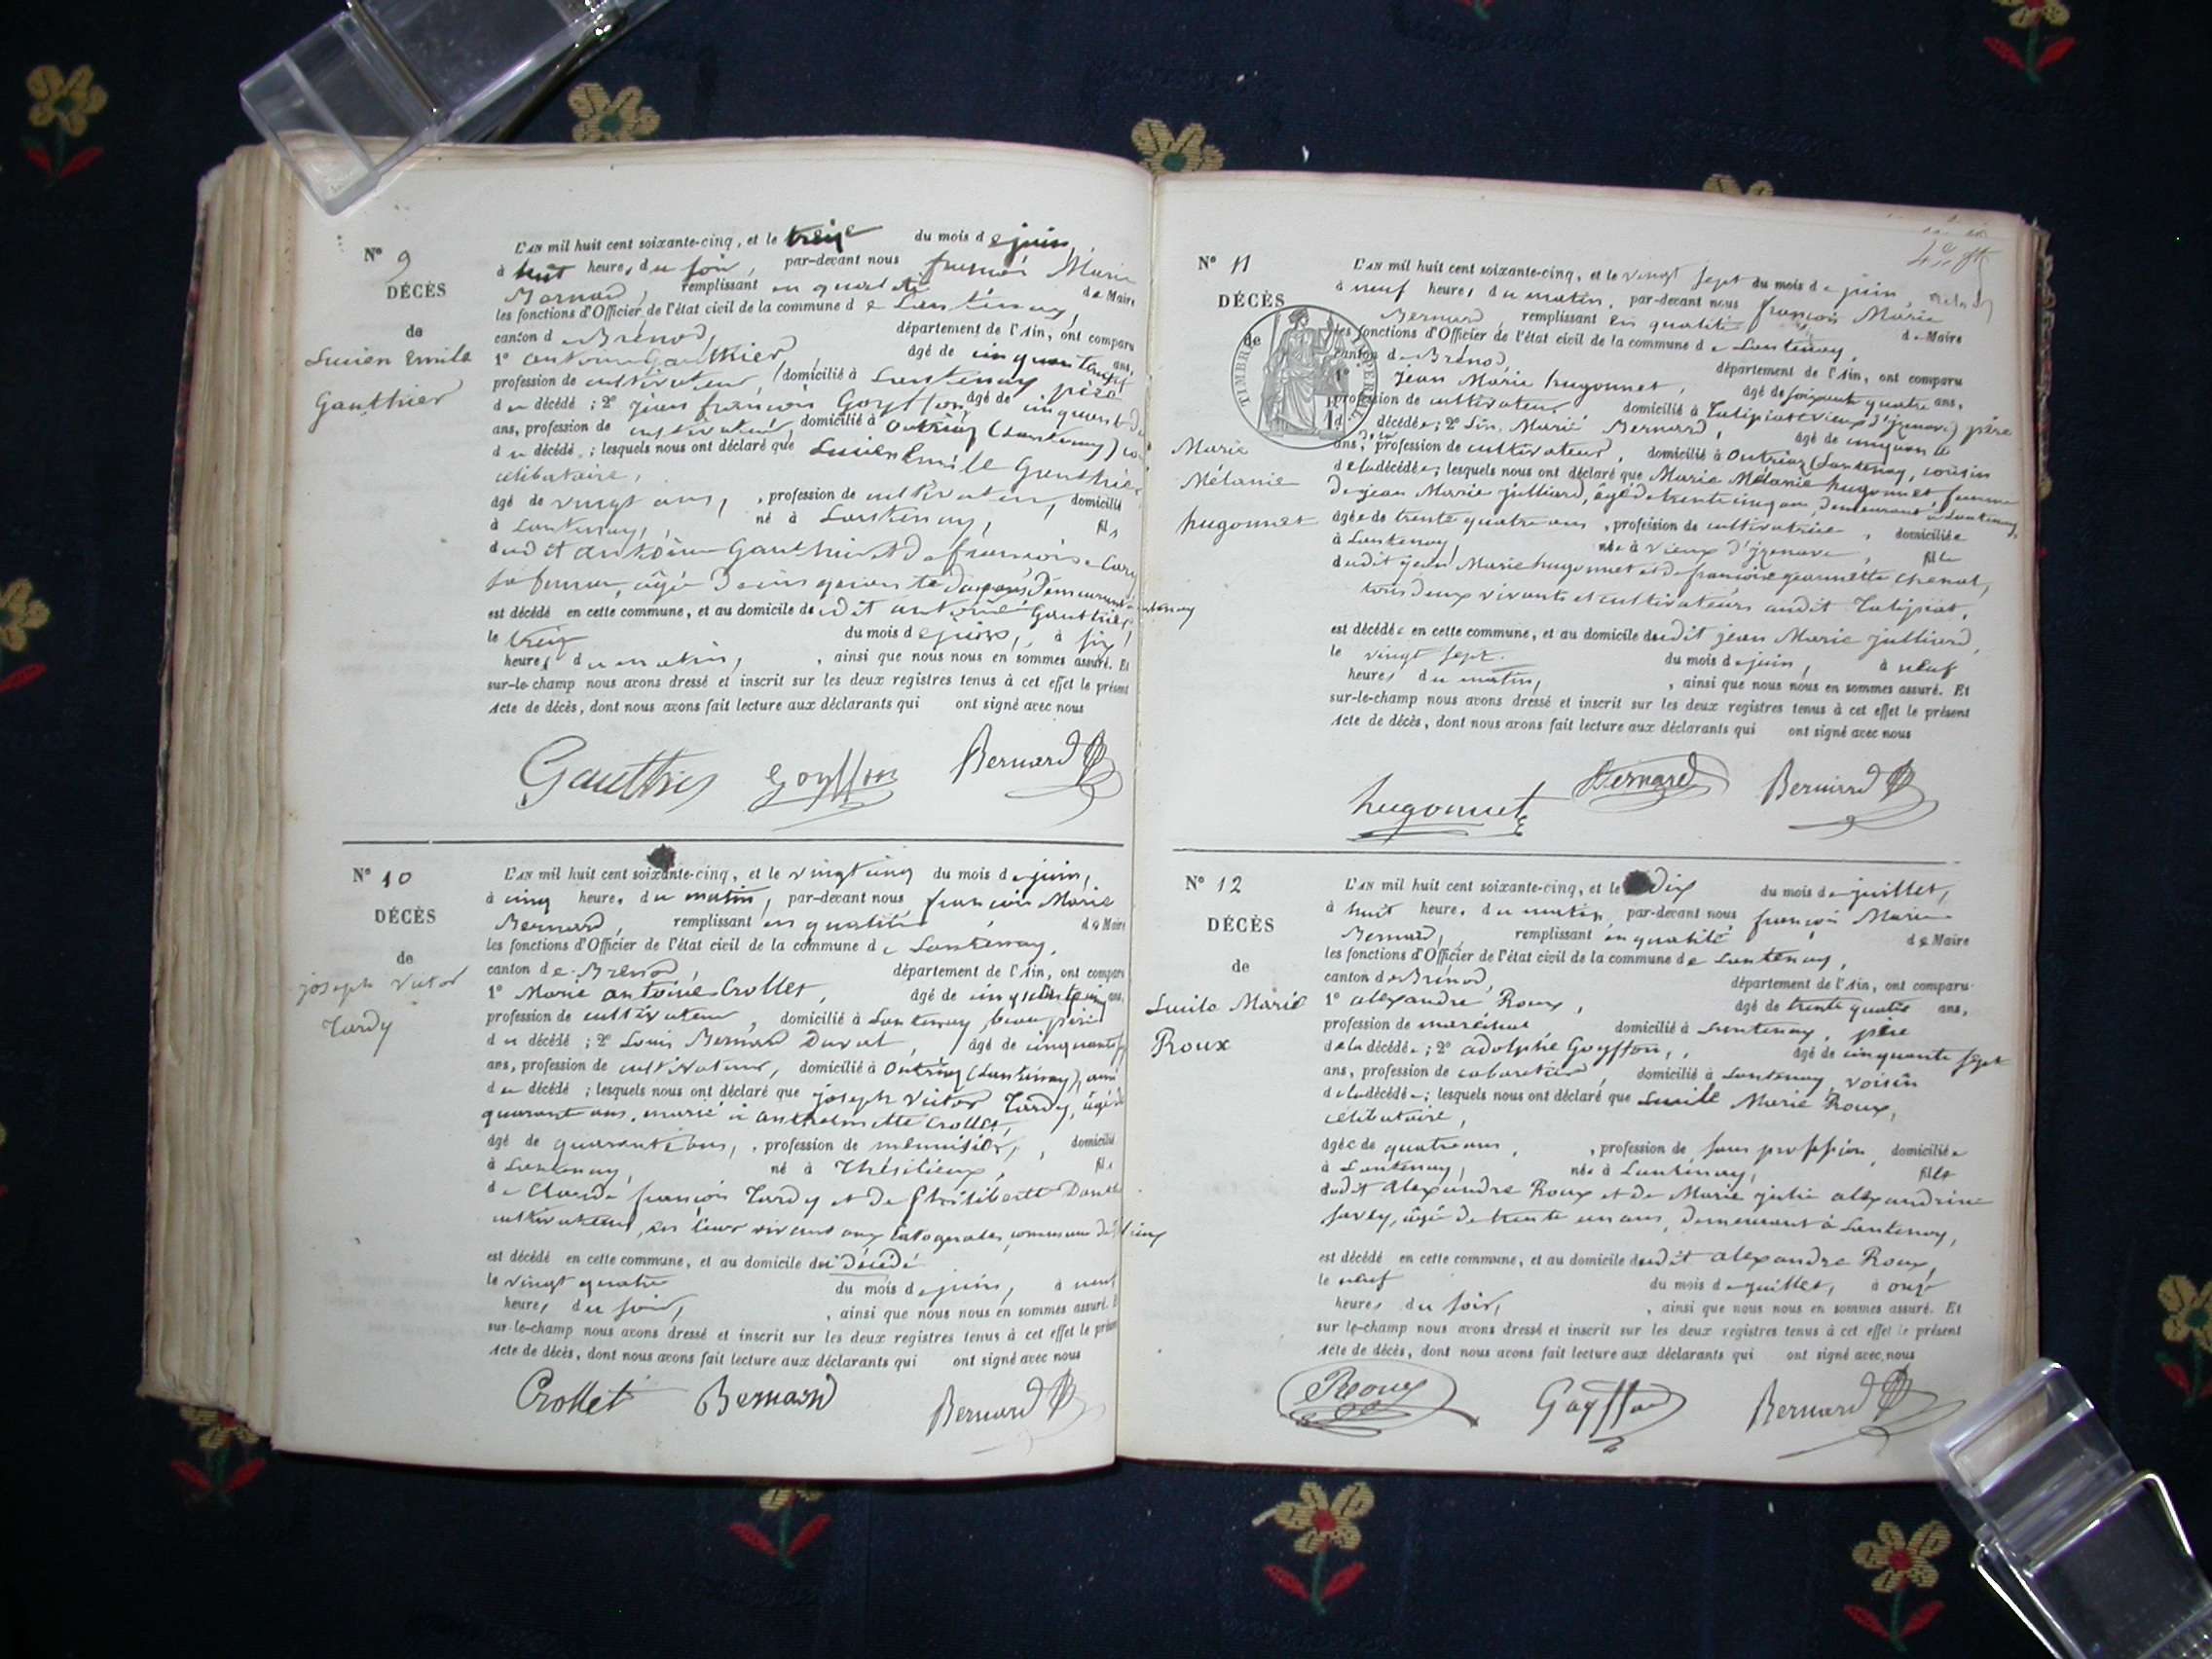 N° 9
DÉCÈS
de
Lucien Emile
Gauthier
L'AN mil huit cent soixante-cinq, et le treize du mois de juin,
à huit heures du soir, par-devant nous françois Marie
Bernard, remplissant en qualité de Maire
les fonctions d'Officier de l'état civil de la commune de Lantenay,
canton de Brénod, département de l'Ain, ont comparu
1° antoine Gauthier, âgé de cinquante ans,
profession de cultivateur, domicilié à Lantenay père
du décédé ; 2° Jean françois Goyffon, âgé de cinquante
ans, profession de cultivateur, domicilié à Outriaz (Lantenay)
du décédé ; lesquels nous ont déclaré que Lucien Emile Gauthier
célibataire,
âgé de vingt ans, profession de cultivateur, domicilié
à Lantenay, né à Lantenay, fils
dudit antoine Gauthier et de françoise
sa femme, âgée de cinquante demeurant à Lantenay
est décédé en cette commune, et au domicile dudit antoine Gauthier,
le treize du mois de juin, à six
heures du matin, ainsi que nous nous en sommes assuré. Et
sur-le-champ nous avons dressé et inscrit sur les deux registres tenus à cet effet le présent
Acte de décès, dont nous avons fait lecture aux déclarants qui ont signé avec nous
Gauthier Goyffon Bernard
N° 10
DÉCÈS
de
joseph Victor
Tardy
L'AN mil huit cent soixante-cinq, et le vingt cinq du mois de juin,
à cinq heures du matin, par-devant nous françois Marie
Bernard, remplissant en qualité de Maire
les fonctions d'Officier de l'état civil de la commune de Lantenay,
canton de Brénod, département de l'Ain, ont comparu
1° Marie antoine Crollet, âgé de cinquante cinq ans,
profession de cultivateur, domicilié à Lantenay, beau père
du décédé ; 2° Louis Bernard Duval, âgé de cinquante
ans, profession de cultivateur, domicilié à Outriaz (Lantenay), ami
du décédé ; lesquels nous ont déclaré que joseph Victor Tardy, âgé de
quarante ans, marié à anthelmette Crollet,
âgé de quarante ans, profession de menuisier, domicilié
à Lantenay, né à Thésilieux, fils
de Claude françois Tardy et de Philiberte
cultivateurs, en leur vivant aux commune de
est décédé en cette commune, et au domicile du décédé
le vingt quatre du mois de juin, à neuf
heures du soir, ainsi que nous nous en sommes assuré. Et
sur-le-champ nous avons dressé et inscrit sur les deux registres tenus à cet effet le présent
Acte de décès, dont nous avons fait lecture aux déclarants qui ont signé avec nous
Crollet Bernard Bernard
N° 11
DÉCÈS
de
TIMBRE IMPERIAL
Marie
Mélanie
hugonnet
L'AN mil huit cent soixante-cinq, et le vingt sept du mois de juin,
à neuf heures du matin, par-devant nous françois Marie
Bernard, remplissant en qualité de Maire
les fonctions d'Officier de l'état civil de la commune de Lantenay,
canton de Brénod, département de l'Ain, ont comparu
1° jean Marie hugonnet, âgé de soixante quatre ans,
profession de cultivateur, domicilié à Talipiat (Vieux d'izenave) père
de la décédée ; 2° Marie Bernard, âgé de cinquante
ans, profession de cultivateur, domicilié à Outriaz (Lantenay, cousin
de la décédée ; lesquels nous ont déclaré que Marie Mélanie hugonnet, femme
de jean Marie julliard, âgé de trente cinq ans, demeurant à Lantenay,
âgée de trente quatre ans, profession de cultivatrice, domiciliée
à Lantenay, née à Vieux d'izenave, fille
dudit jean Marie hugonnet et de françoise jeannette
tous deux vivants et cultivateurs audit Talipiat,
est décédée en cette commune, et au domicile dudit jean Marie julliard,
le vingt sept du mois de juin, à neuf
heures du matin, ainsi que nous nous en sommes assuré. Et
sur-le-champ nous avons dressé et inscrit sur les deux registres tenus à cet effet le présent
Acte de décès, dont nous avons fait lecture aux déclarants qui ont signé avec nous
hugonnet Bernard Bernard
N° 12
DÉCÈS
de
Lucile Marie
Roux
L'AN mil huit cent soixante-cinq, et le dix du mois de juillet,
à huit heures du matin par-devant nous françois Marie
Bernard, remplissant en qualité de Maire
les fonctions d'Officier de l'état civil de la commune de Lantenay,
canton de Brénod, département de l'Ain, ont comparu
1° alexandre Roux, âgé de trente quatre ans,
profession de maréchal, domicilié à Lantenay, père
de la décédée ; 2° adolphe Goyffon, âgé de cinquante sept
ans, profession de cabaretier, domicilié à Lantenay, voisin
de la décédée ; lesquels nous ont déclaré que Lucile Marie Roux,
célibataire,
âgée de quatre ans, profession de sans profession domiciliée
à Lantenay, née à Lantenay, fille
dudit alexandre Roux et de Marie julie alexandrine
Savey, âgée de trente un ans, demeurant à Lantenay,
est décédé en cette commune, et au domicile dudit alexandre Roux,
le neuf du mois de juillet, à onze
heures du soir, ainsi que nous nous en sommes assuré. Et
sur le-champ nous avons dressé et inscrit sur les deux registres tenus à cet effet le présent
Acte de décès, dont nous avons fait lecture aux déclarants qui ont signé avec nous
Roux Goyffon Bernard